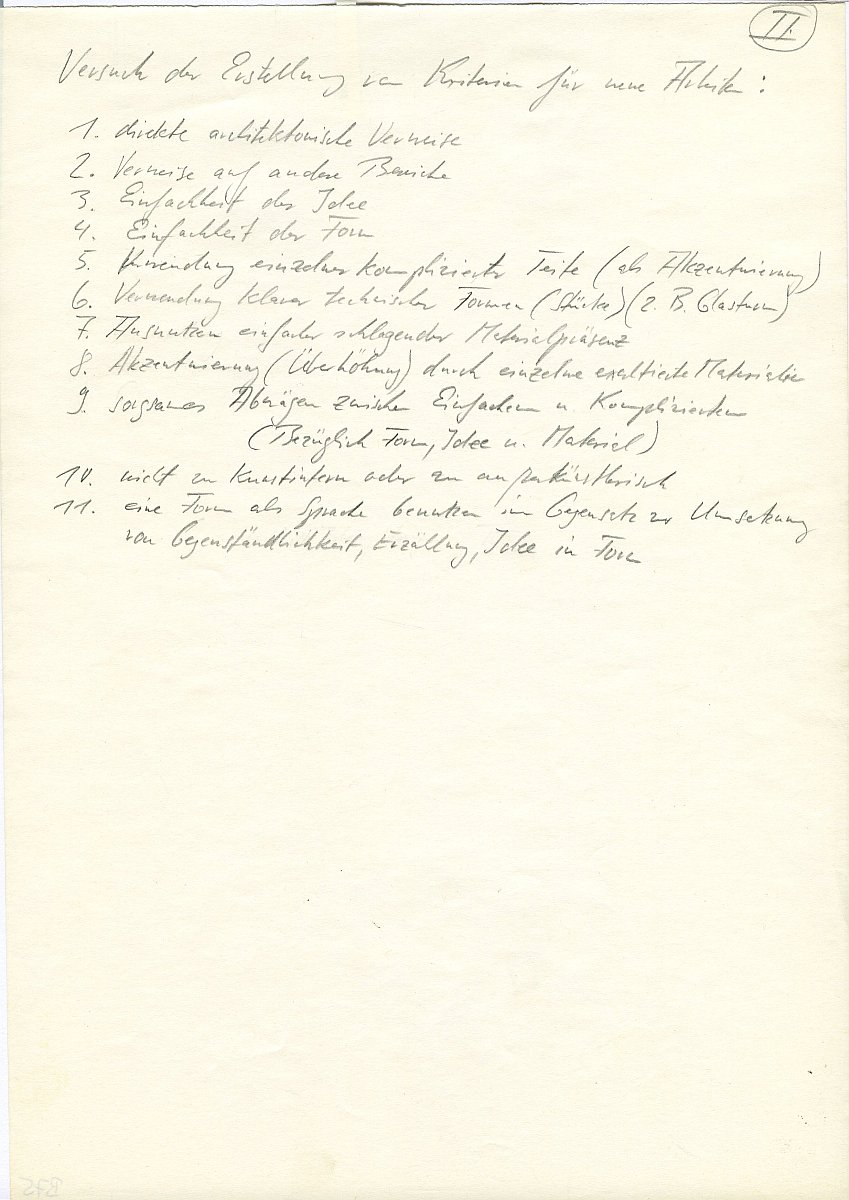 II.
Versuch der Erstellung von Kriterien für neue Arbeiten:
1. direkte architektonische Verweise
2. Verweise auf andere Bereiche
3. Einfachheit der Idee
4. Einfachheit der Form
5. Verwendung einzelner komplizierter Teile (als Akzentuierung)
6. Verwendung klarer technischer Formen (Stücke) (z. B. Glasturm)
7. Ausnutzen einfacher schlagender Materialpräsenz
8. Akzentuierung (Überhöhung) durch einzelne exaltierte Materialien
9. sorgsames Abwägen zwischen Einfachem u. Kompliziertem
(Bezüglich Form, Idee u. Material)
10. nicht zu Kunstintern oder zu außerkünstlerisch
11. eine Form als Sprache benutzen im Gegensatz zur Umsetzung
von Gegenständlichkeit, Erzählung, Idee in Form